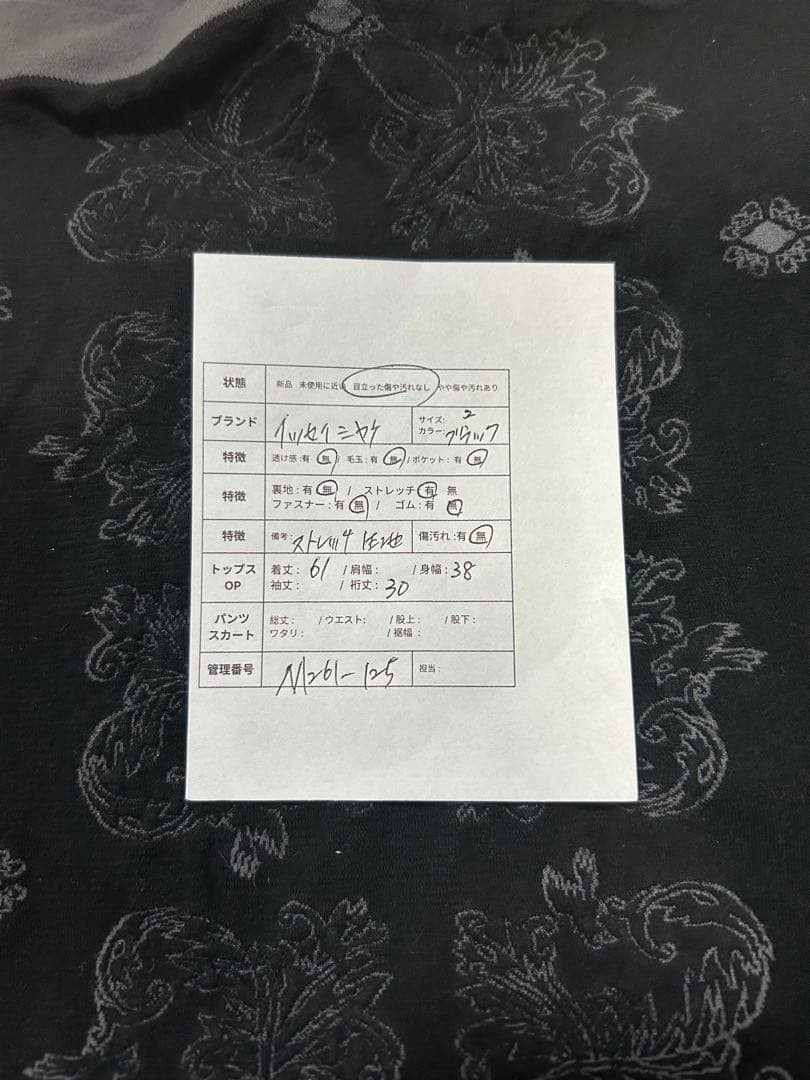 状態 新品 未使用に近い 目立った傷や汚れなし やや傷や汚れあり
ブランド イッセイミヤケ サイズ: 2
カラー: ブラック
特徴 透け感:有 無 / 毛玉:有 無 / ポケット:有 無
特徴 裏地:有 無 / ストレッチ 有 無
ファスナー:有 無 / ゴム:有 無
特徴 備考: ストレッチ 生地 傷汚れ:有 無
トップス OP 着丈: 61 / 肩幅: / 身幅: 38
袖丈: / 裄丈: 30
パンツ スカート 総丈: / ウエスト: / 股上: / 股下:
ワタリ: / 裾幅:
管理番号 M261-125 担当: